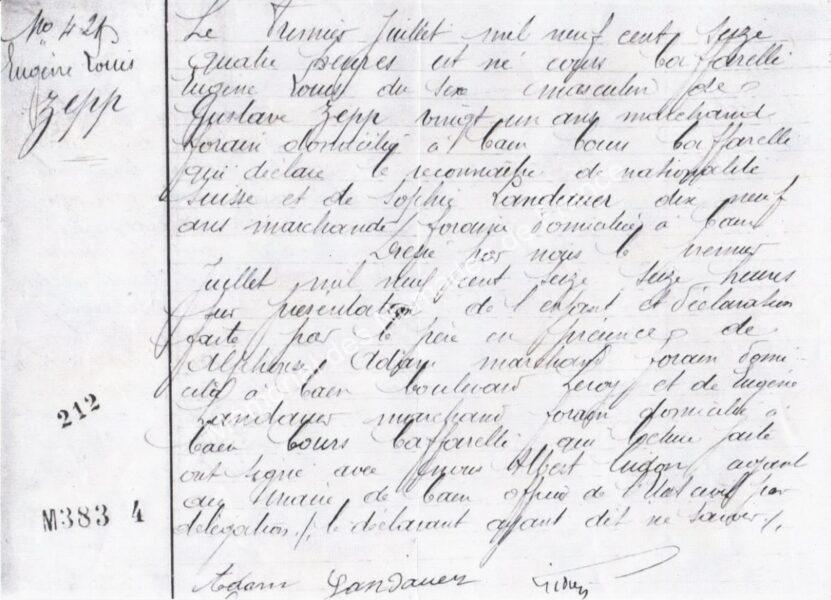 No 42
Eugène Louis
Zepp
Le Premier Juillet mil neuf cent seize
quatre heures est né cours Caffarelli
Eugène Louis du sexe masculin de
Gustave Zepp vingt un ans marchand
forain domicilié à Caen Cours Caffarelli
qui déclare le reconnaître de nationalité
suisse et de Sophie Landauer dix neuf
ans marchande foraine domiciliée à Caen
Dressé par nous le premier
Juillet mil neuf cent seize seize heures
sur présentation de l'enfant et déclaration
faite par le père en présence de
Alphonse Adam marchand forain domi-
cilié à Caen boulevard Leroy et de Eugène
Landauer marchand forain domicilié à
Caen Cours Caffarelli qui lecture faite
ont signé avec nous Albert adjoint
au maire de Caen officier de l'Etat civil par
délégation ./. le déclarant ayant dit ne savoir ./.
212
M383 4
Adam Landauer